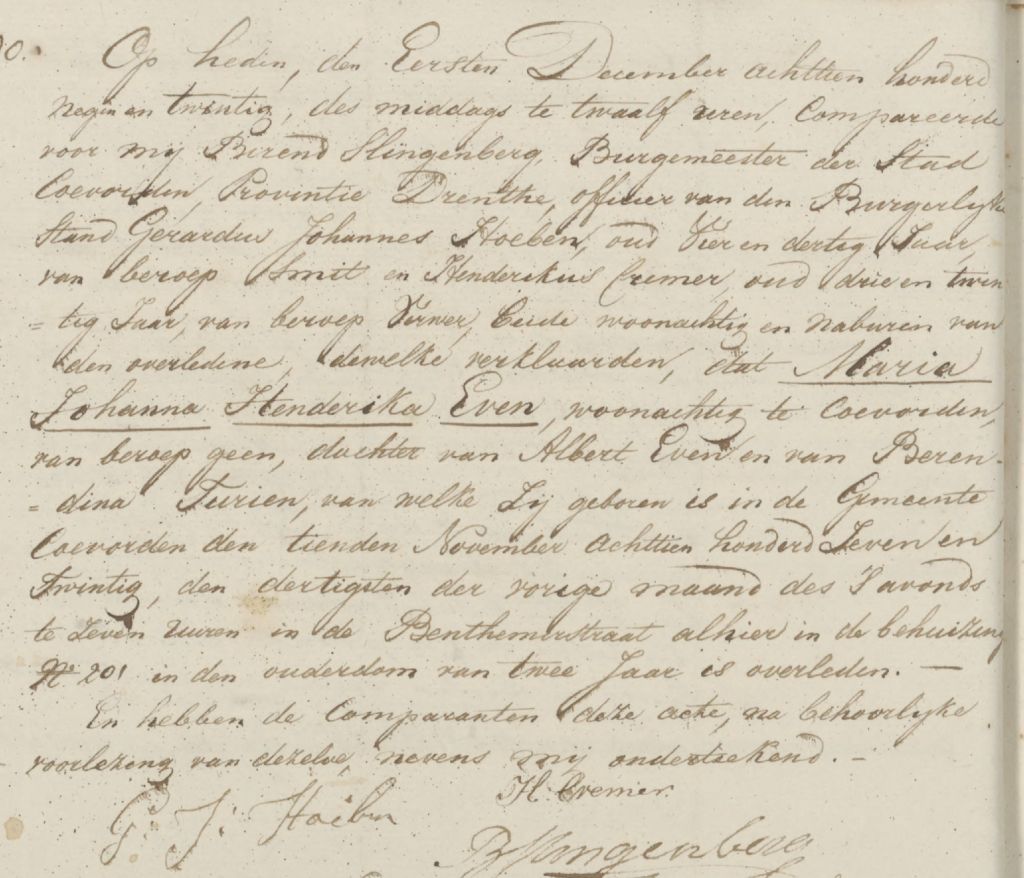 0.
Op heden, den Eersten December achttien honderd
negen en twintig, des middags te twaalf uren, Compareerde
voor mij Berend Slingenberg, Burgemeester der Stad
Coevorden, Provintie Drenthe, officier van den Burgerlyke
Stand Gerardus Johannes Hoeben, oud Vier en dertig Jaar,
van beroep Smit en Henderikus Cremer, oud drie en twin
= tig Jaar, van beroep Verwer, beide woonachtig en naburen van
den overledene, dewelke verklaarden, dat Maria
Johanna Henderika Even, woonachtig te Coevorden,
van beroep geen, dochter van Albert Even en van Beren-
= dina Turien, van welke Zij geboren is in de Gemeente
Coevorden den tienden November achttien honderd Zeven en
Twintig, den dertigsten der vorige maand des S'avonds
te Zeven uuren in de Benthemerstraat alhier in de behuizing
No 201 in den ouderdom van twee Jaar is overleden. —
En hebben de Comparanten deze acte, na behoorlyke
voorlezing van dezelve, nevens mij onderteekend. -
H. Cremer
G: J: Hoeben
B Slingenberg